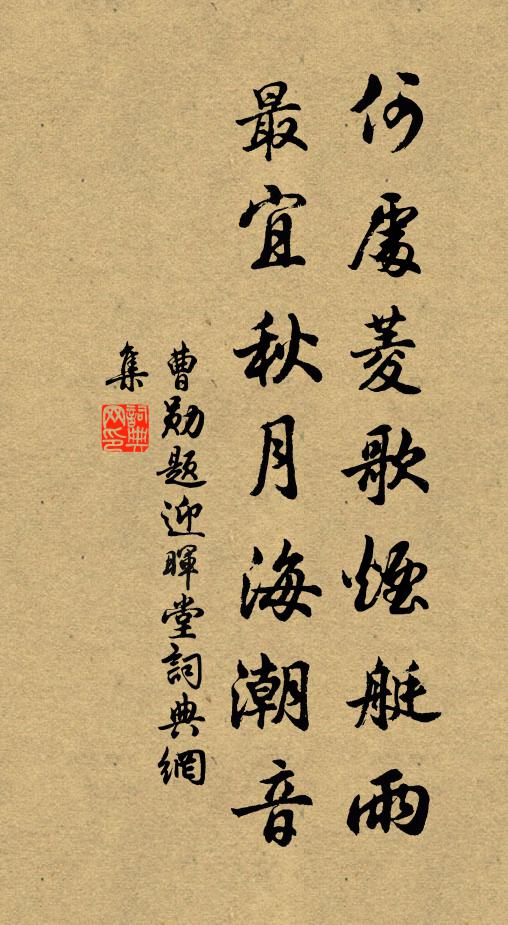 何處菱歌煙艇雨
最宜秋月海潮音
曹勛題迎暉堂詞典網
集
詞典网印